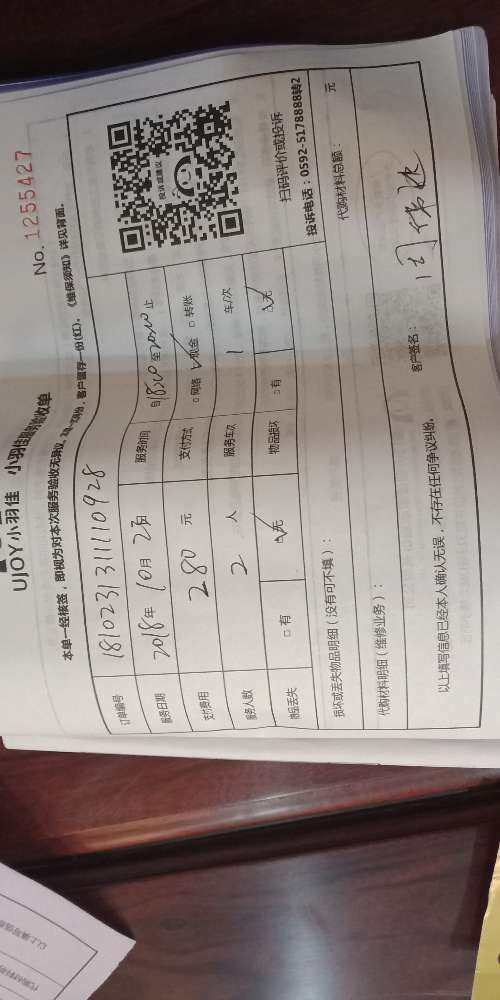 UJOY小羽佳 小羽佳服务验收单
No. 1255427
本单一经核签，即视为对本次服务验收无异议。客户留存一份(红)。《维保须知》详见背面。
订单编号 1810231311110928
服务日期 2018年 10月 23日 服务时间 自18:00 至20:00 止
支付费用 280 元 支付方式 □ 网络 ☑ 现金 □ 转账
服务人数 2 人 服务车次 1 车/次
物品丢失 □ 有 ☑ 无 物品损坏 □ 有 ☑ 无
投诉 或建议
扫码评价或投诉
投诉电话：0592-5178888转2
损坏或丢失物品明细（没有可不填）：
代购材料明细（维修业务）： 代购材料总额： 元
以上填写信息已经本人确认无误，不存在任何争议纠纷。 客户签名：
以上填写信息
代购材料明细